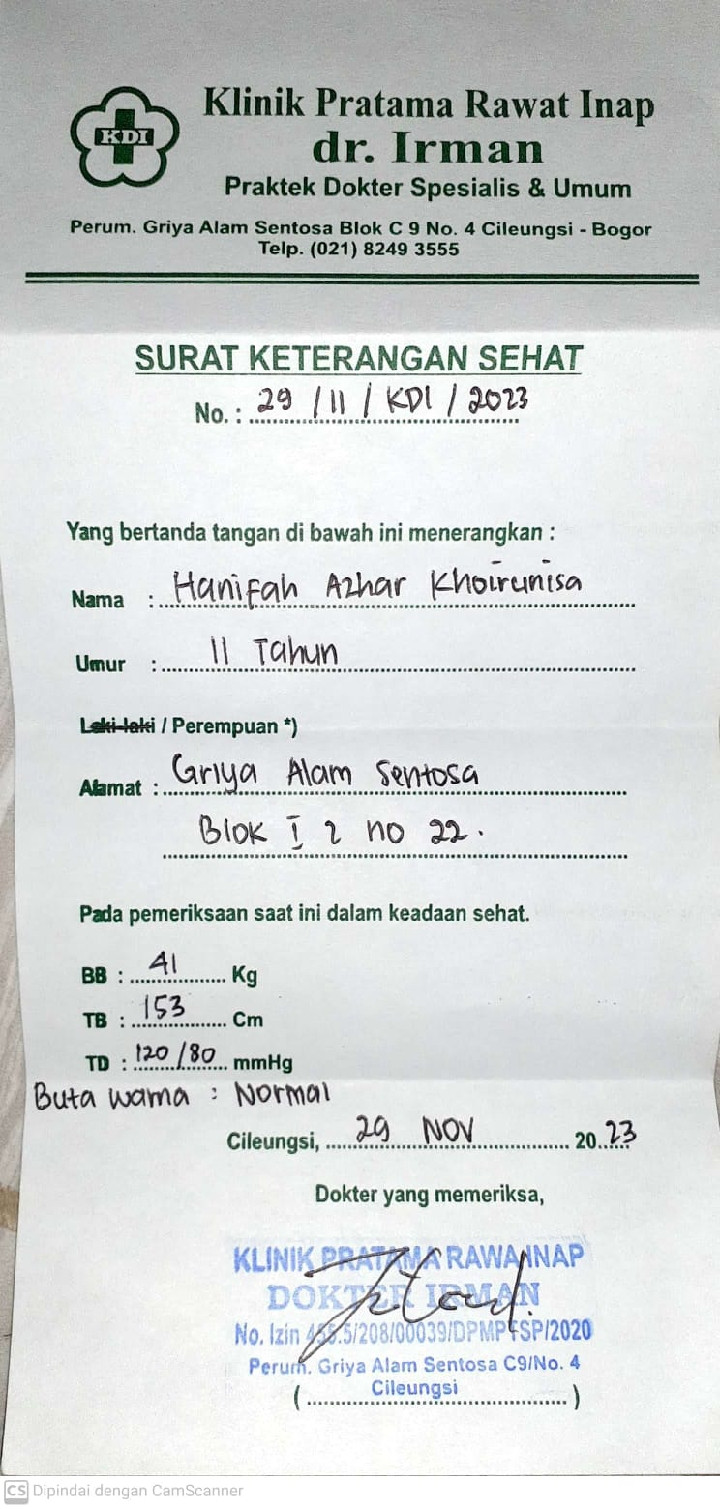 KDI
Klinik Pratama Rawat Inap
dr. Irman
Praktek Dokter Spesialis & Umum
Perum. Griya Alam Sentosa Blok C 9 No. 4 Cileungsi - Bogor
Telp. (021) 8249 3555
SURAT KETERANGAN SEHAT
No. : 29 / 11 / KDI / 2023
Yang bertanda tangan di bawah ini menerangkan :
Nama : Hanifah Azhar Khoirunisa
Umur : 11 Tahun
Laki-laki / Perempuan *)
Alamat : Griya Alam Sentosa
Blok I 2 no 22.
Pada pemeriksaan saat ini dalam keadaan sehat.
BB : 41 Kg
TB : 153 Cm
TD : 120/80 mmHg
Buta warna : Normal
Cileungsi, 29 NOV 2023
Dokter yang memeriksa,
KLINIK PRATAMA RAWA INAP
DOKTER IRMAN
No. Izin /208/00039/DPMPTSP/2020
Perum. Griya Alam Sentosa C9/No. 4
Cileungsi
(                    )
CS Dipindai dengan CamScanner